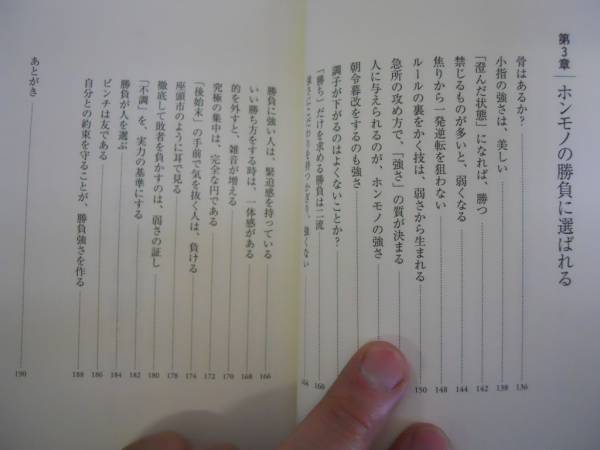 第3章 ホンモノの勝負に選ばれる
骨はあるか? 136
小指の強さは、美しい 138
「澄んだ状態」になれば、勝つ 142
禁じるものが多いと、弱くなる 144
焦りから一発逆転を狙わない 148
ルールの裏をかく技は、弱さから生まれる 150
急所の攻め方で、「強さ」の質が決まる
人に与えられるのが、ホンモノの強さ
朝令暮改をするのも強さ
調子が下がるのはよくないことか?
「勝ち」だけを求める勝負は二流 160
強さにこだわりを持つかぎり、強くない
勝負に強い人は、緊迫感を持っている 166
いい勝ち方をする時は、一体感がある 168
的を外すと、雑音が増える 170
究極の集中は、完全な円である 172
「後始末」の手前で気を抜く人は、負ける 174
座頭市のように耳で見る 178
徹底して敗者を負かすのは、弱さの証し 180
「不調」を、実力の基準にする 182
勝負が人を選ぶ 184
ピンチは友である 186
自分との約束を守ることが、勝負強さを作る 188
あとがき 190